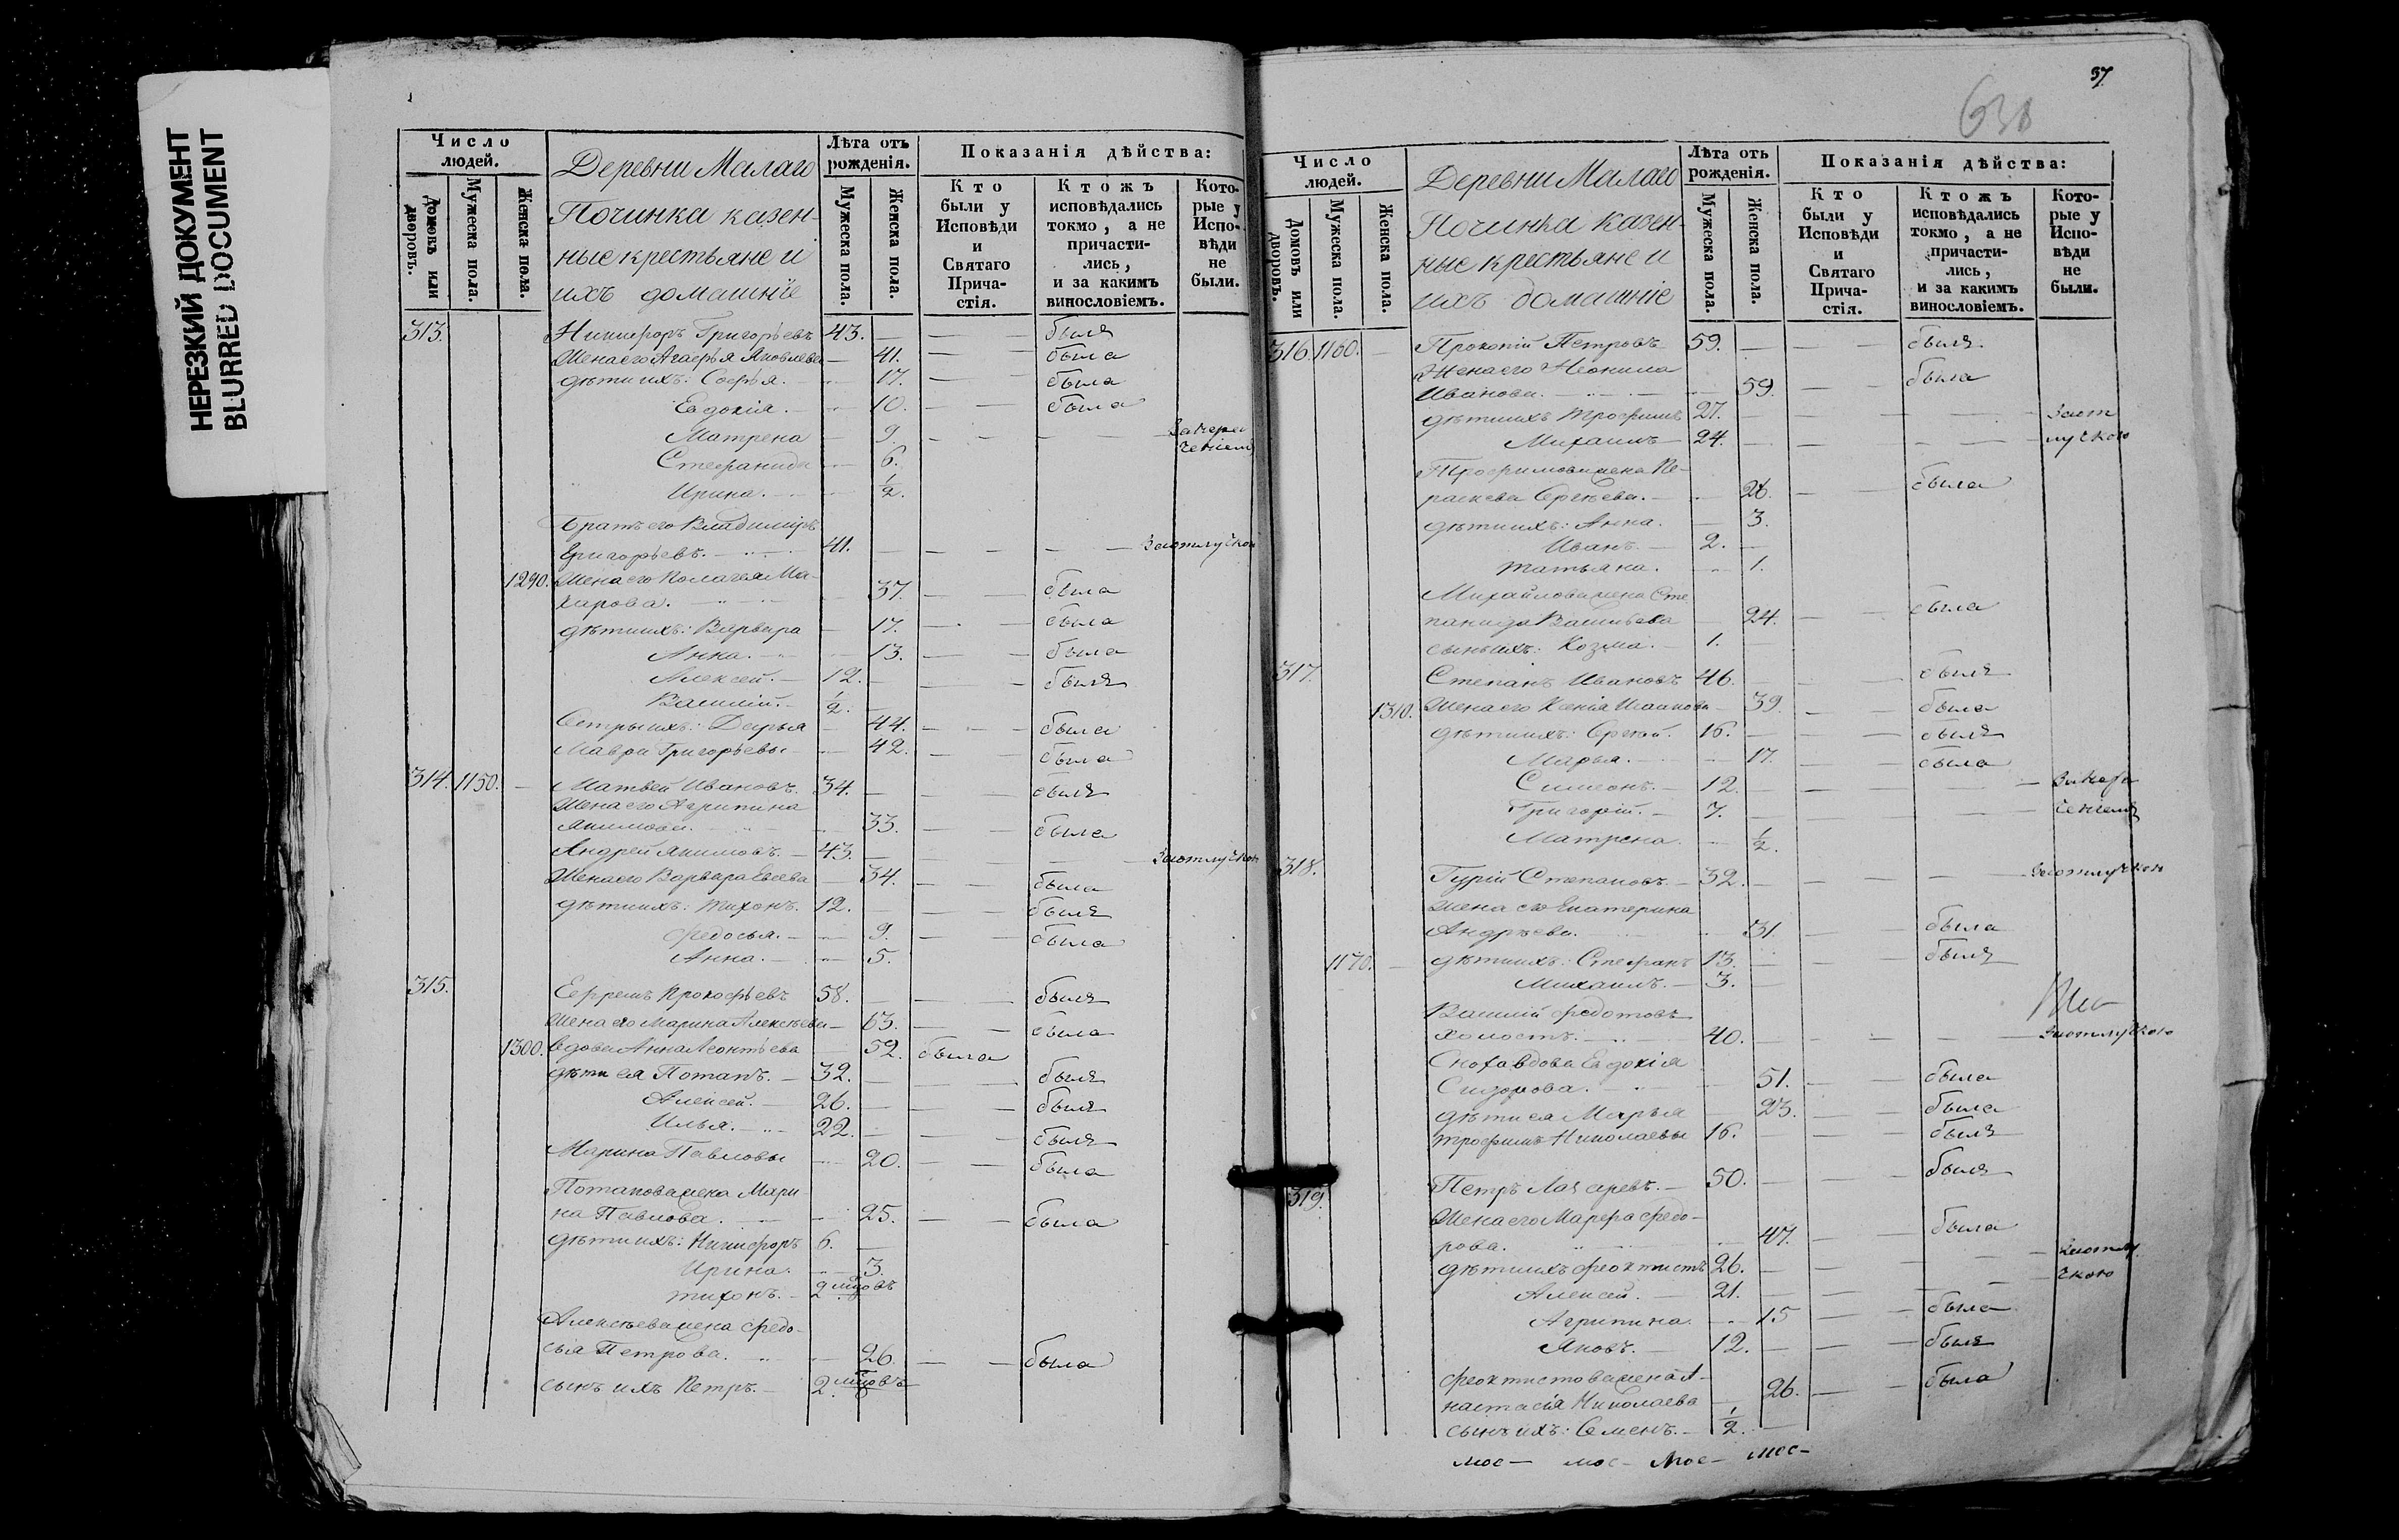 НЕРЕЗКИЙ ДОКУМЕНТ
BLURRED DOCUMENT
Число людей.
Домовъ или дворовъ.
Мужеска пола.
Женска пола.
Деревни Малаго
Починка казен-
ные крестьяне и
ихъ домашніе
Лѣта отъ рожденія.
Мужеска пола.
Женска пола.
Показанія дѣйства:
Кто были у Исповѣди и Святаго Причастія.
Ктожъ исповѣдались токмо, а не причастились, и за какимъ винословіемъ.
Которые у Исповѣди не были.
313. Никифоръ Григорьевъ 43. — — былъ
Жена его Агафья Яковлева — 41. — — была
дѣти ихъ: Софья. — 17. — — была
Евдокія. — 10. — — была
Матрена — 9. — — — —
Стефанида — 6.
Ирина. — 1/2.
Братъ его Владиміръ
Григорьевъ. — 41. — — — — — За отлучкою
1290. Жена его Пелагея Ма-
карова. — 37. — — была
дѣти ихъ: Варвара — 17. — — была
Анна. — 13. — — была
Алексей. — 12. — — — былъ
Василій. — 1/2. —
Сестры ихъ: Дарья — 44. — — была
Мавра Григорьевы — 42. — — была
314. 1150. — Матвей Ивановъ. 34. — — — былъ
Жена его Агрипина
Якимова. — 33. — — была
Андрей Якимовъ. — 43. — — — — — За отлучкою
Жена его Варвара Евсева — 34. — — была
дѣти ихъ: Тихонъ. 12. — — — былъ
Федосья. — 9. — — была
Анна. — 5.
315. Ефремъ Прокофьевъ 58. — — — былъ
Жена его Марина Алексѣева — 63. — — была
1300. Вдова Анна Леонтьева — 52. была
дѣти ея Потапъ. — 32. — — — былъ
Алексей. — 26. — — — былъ
Илья. — 22. — — — былъ
Марина Павловы — 20. — — была
Потапова жена Мари-
на Павлова. — 25. — — была
дѣти ихъ: Никифоръ 6. —
Ирина. — 3.
Тихонъ. — 2 мцовъ
Алексѣева жена Федо-
сья Петрова. — 26. — — была
сынъ ихъ Петръ. — 2. мцовъ
37.
638
Число людей.
Домовъ или дворовъ.
Мужеска пола.
Женска пола.
Деревни Малаго
Починка казен-
ные крестьяне и
ихъ домашніе
Лѣта отъ рожденія.
Мужеска пола.
Женска пола.
Показанія дѣйства:
Кто были у Исповѣди и Святаго Причастія.
Ктожъ исповѣдались токмо, а не причастились, и за какимъ винословіемъ.
Которые у Исповѣди не были.
316. 1160. — Прокопій Петровъ 59. — — — былъ
Жена его Неонила
Иванова. — 59. — — была
дѣти ихъ Трофимъ 27. — — — — — За от
Михаилъ — 24. — — — — — лучкою
Трофимова жена Па-
раскева Сергѣева. — 26. — — была
дѣти ихъ: Анна. — 3.
Иванъ. — 2. —
Татьяна. — 1.
Михайлова жена Сте-
панида Васильева — 24. — — была
сынъ ихъ: Козма. — 1. —
317. Степанъ Ивановъ 46. — — — былъ
1310. Жена его Ксенія — 39. — — была
дѣти ихъ: Сергей. 16. — — — былъ
Марья. — 17. — — была
Симеонъ. — 12. — — — — —
Григорій. — 7. — — — — —
Матрена. — 1/2.
318. Гурій Степановъ. — 32. — — — — — За отлучкою
Жена его Екатерина
Андрѣева. — 31. — — была
1170. — дѣти ихъ: Стефанъ 13. — — — былъ
Михаилъ. — 3. —
Василій Федотовъ
холостъ. — 40. — — — — — За отлучкою
Сноха вдова Евдокія
Сидорова. — 51. — — была
дѣти ея Марья — 23. — — была
Трофимъ Николаевы 16. — — — былъ
319. Петръ Лазаревъ. — 50. — — — былъ
Жена его Марфа Федо-
рова. — 47. — — была
дѣти ихъ Феоктистъ 26. — — — — За отлу
Алексей. — 21. — — — — чкою
Агрипина. — 15 — — была
Яковъ. — 12. — — — былъ
Феоктистова жена А-
настасія Николаева — 26. — — была
сынъ ихъ: Семенъ. — 1/2. —